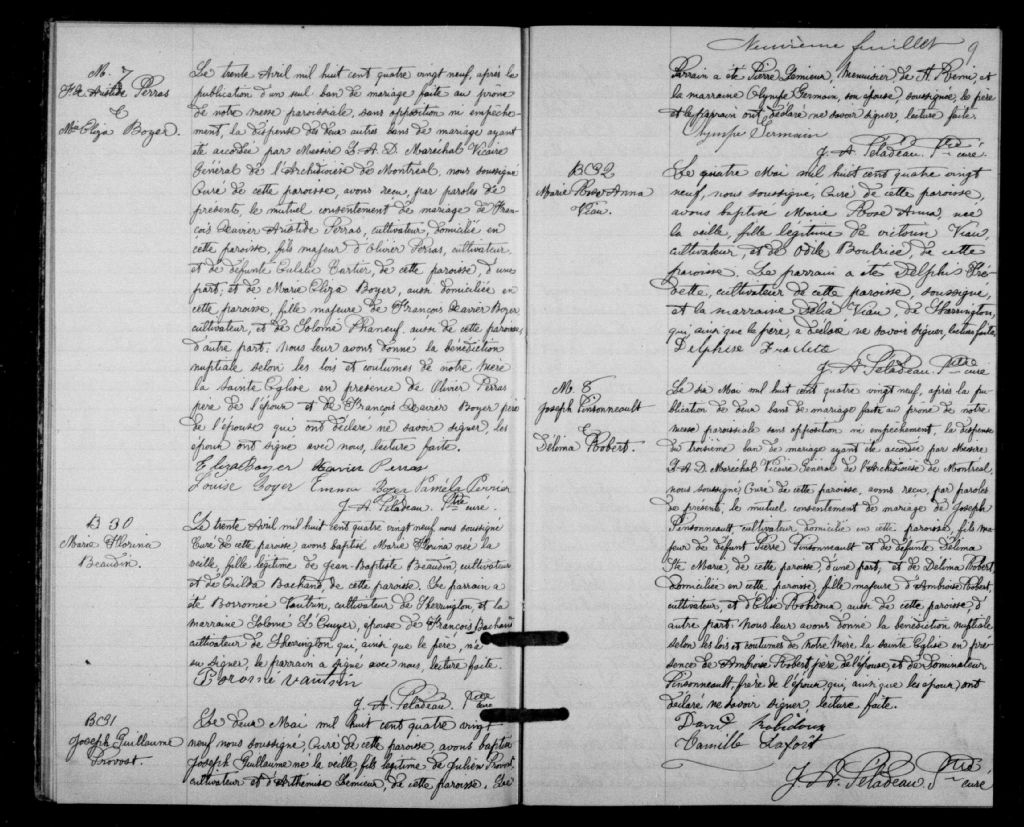 M. 7
F.X. Aristide Perras
&
Mie Eliza Boyer.
Le trente Avril mil huit cent quatre vingt neuf, après la
publication d'un seul ban de mariage faite au prône
de notre messe paroissiale, sans opposition ni empêche-
ment, la dispense des deux autres bans de mariage ayant
été accordée par Messire L. A. D. Maréchal Vicaire
Général de l'Archidiocèse de Montréal, nous soussigné
Curé de cette paroisse, avons reçu, par paroles de
présents, le mutuel consentement de mariage de Fran-
çois Xavier Aristide Perras, cultivateur, domicilié en
cette paroisse, fils majeur d'Olivier Perras, cultivateur
et de défunte Eulalie Cartier, de cette paroisse, d'une
part; et de Marie Eliza Boyer, aussi domiciliée en
cette paroisse, fille majeure de François Xavier Boyer
cultivateur, et de Solomé Phaneuf, aussi de cette paroisse
d'autre part. Nous leur avons donné la bénédiction
nuptiale selon les lois et coutumes de notre Mère
la Sainte Eglise en présence de Olivier Perras
père de l'époux et de François Xavier Boyer père
de l'épouse qui ont déclaré ne savoir signer, les
époux ont signé avec nous, lecture faite.
Eliza Boyer Xavier Perras
Louise Boyer Emma Boyer Paméla Perrier
J. A. Péladeau. Ptre curé.
B 30
Marie Florina
Beaudin.
Le trente Avril mil huit cent quatre vingt neuf nous soussigné
Curé de cette paroisse, avons baptisé Marie Florina née la
veille, fille légitime de Jean-Baptiste Beaudin, cultivateur
et de Exilda Bachand, de cette paroisse. Le parrain a
été Borromée Vautrin, cultivateur de Sherrington, et la
marraine Solomé L'Ecuyer, épouse de François Bachand
cultivateur de Sherrington qui, ainsi que le père, n'a
su signer, le parrain a signé avec nous, lecture faite.
Boromé Vautrin
J. A. Péladeau. Ptre curé
B 31
Joseph Guillaume
Provost.
Le deux Mai mil huit cent quatre vingt
neuf nous soussigné, Curé de cette paroisse, avons baptisé
Joseph Guillaume né la veille fils légitime de Julien Provost,
cultivateur et d'Arthémise Lemieux, de cette paroisse. Le
Neuvième feuillet 9
Parrain a été Pierre Lemieux, Menuisier, de St Rémi, et
la marraine Olympe Germain, son épouse, soussignée, le père
et le parrain ont déclaré ne savoir signer, lecture faite.
Olympe Germain
J. A. Péladeau. Ptre curé.
B 32
Marie Rose Anna
Viau.
Le quatre Mai mil huit cent quatre vingt
neuf, nous soussigné, Curé de cette paroisse,
avons baptisé Marie Rose Anna, née
la veille, fille légitime de Victorin Viau,
cultivateur, et de Odile Boutrice, de cette
paroisse. Le parrain a été Delphis Fré-
dette, cultivateur de cette paroisse, soussigné,
et la marraine Délia Viau, de Sherrington,
qui, ainsi que le père, a déclaré ne savoir signer, lecture faite
Delphise Fredette
J. A. Péladeau. Ptre curé
M. 8
Joseph Pinsonneault
&
Délima Robert.
Le six Mai mil huit cent quatre vingt neuf, après la pu-
blication de deux bans de mariage faite au prône de notre
messe paroissiale sans opposition ni empêchement, la dispense
du troisième ban de mariage ayant été accordée par Messire
L. A. D. Maréchal Vicaire Général de l'Archidiocèse de Montréal,
nous soussigné, Curé de cette paroisse, avons reçu, par paroles
de présents, le mutuel consentement de mariage de Joseph
Pinsonneault cultivateur domicilié en cette paroisse, fils ma-
jeur de défunt Pierre Pinsonneault et de défunte Délima
Ste Marie, de cette paroisse, d'une part, et de Délima Robert,
domiciliée en cette paroisse, fille majeure d'Ambroise Robert,
cultivateur, et d'Elise aussi de cette paroisse, d'
autre part. Nous leur avons donné la bénédiction nuptiale
selon les lois et coutumes de Notre Mère la Sainte Eglise en pré-
sence de Ambroise Robert père de l'épouse, et de
Pinsonneault, frère de l'époux, qui, ainsi que les époux, ont
déclaré ne savoir signer, lecture faite.
David Robidoux
Camille Lafort
J. A. Péladeau. Ptre curé